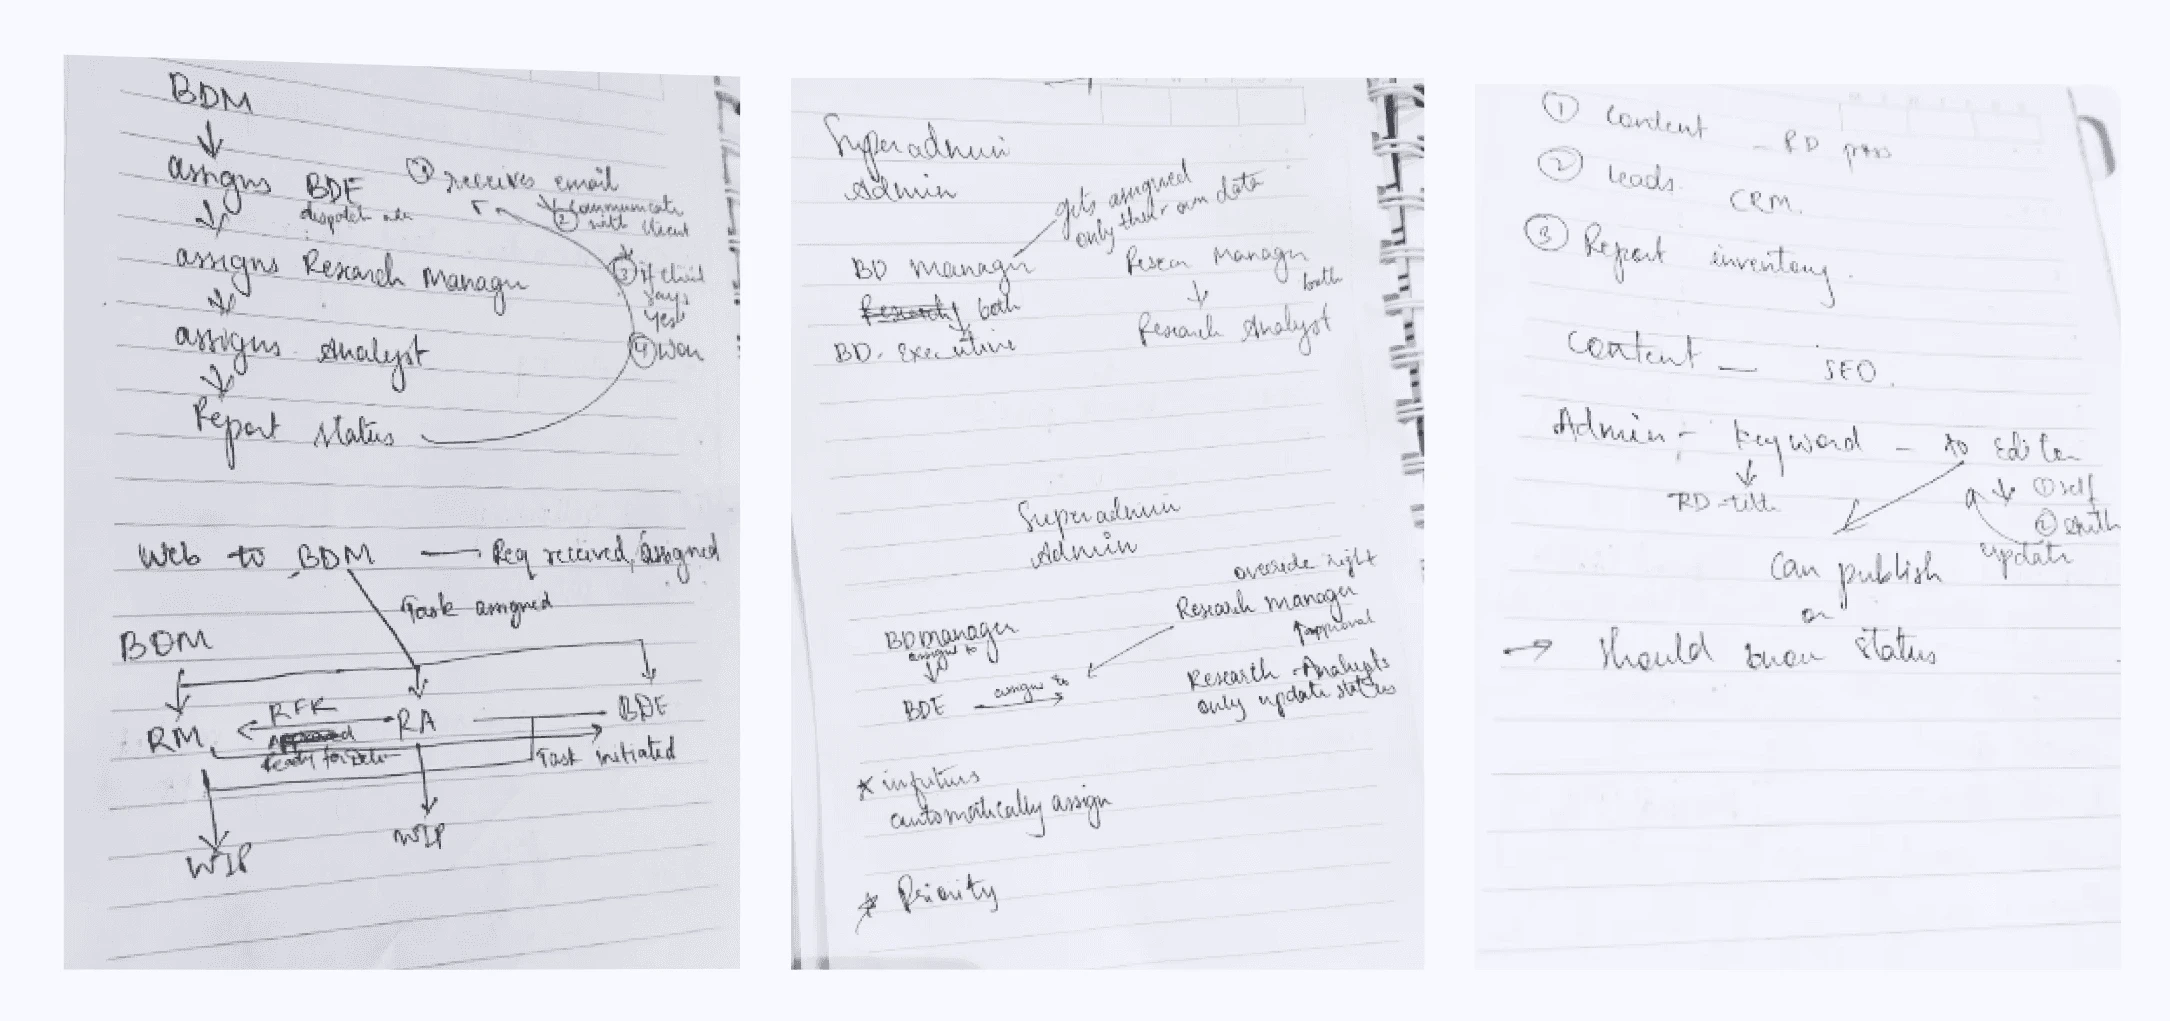 BDM
assigns BDE
dispatch
① receives email
② communicate
with client
assigns Research Manager
③ if client
says
Yes
assigns Analyst
④ Won
Report status
Web to BDM — Req received, assigned
Task assigned
BDM
RM RFK RA BDE
Ready for
Task initiated
WIP
WIP
Superadmin
Admin
gets assigned
only their own data
BD Manager
both
BD. Executive
Manager
both
Research Analyst
Superadmin
Admin
override right
Research manager
approval
Research Analysts
only update status
BDmanager
assign to
BDE assign to
* infuture
automatically assign
* Priority
① Content - RD
② Leads. CRM.
③ Report inventory.
Content — SEO.
Admin - keyword - to Editor
RD-title
① self
②
update
Can publish
or
→ Should know status